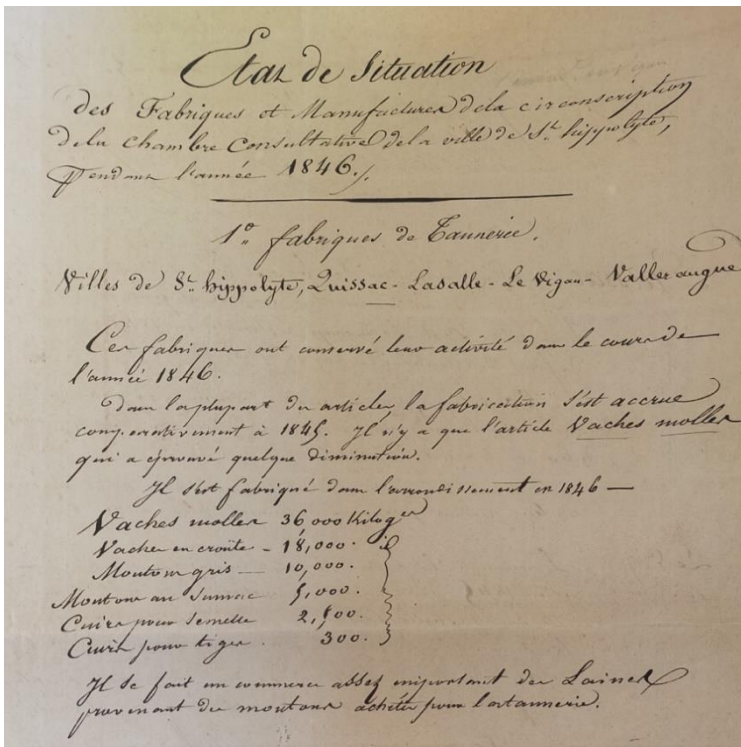 Etat de Situation
des Fabriques et Manufactures de la circonscription
de la chambre Consultative de la ville de St. hippolyte,
Pendant l'année 1846./.
1o. fabriques de Tannerie.
Villes de St. hippolyte, Quissac - Lasalle - Le Vigan - Valleraugue
Ces fabriques ont conservé leur activité dans le cours de
l'année 1846.
Dans la plupart des articles, la fabrication s'est accrue
comparativement à 1845. Il n'y a que l'article Vaches molles
qui a éprouvé quelque diminution.
Il s'est fabriqué dans l'arrondissement en 1846 —
Vaches molles 36,000 Kilogs
Vaches en croûte - 18,000. id
Moutons gris — 10,000.
Moutons au Sumac 5,000.
Cuirs pour Semelle 2,500.
Cuirs pour tiges . 300.
Il se fait un commerce assez important des Laines
provenant des moutons achetés pour la tannerie.